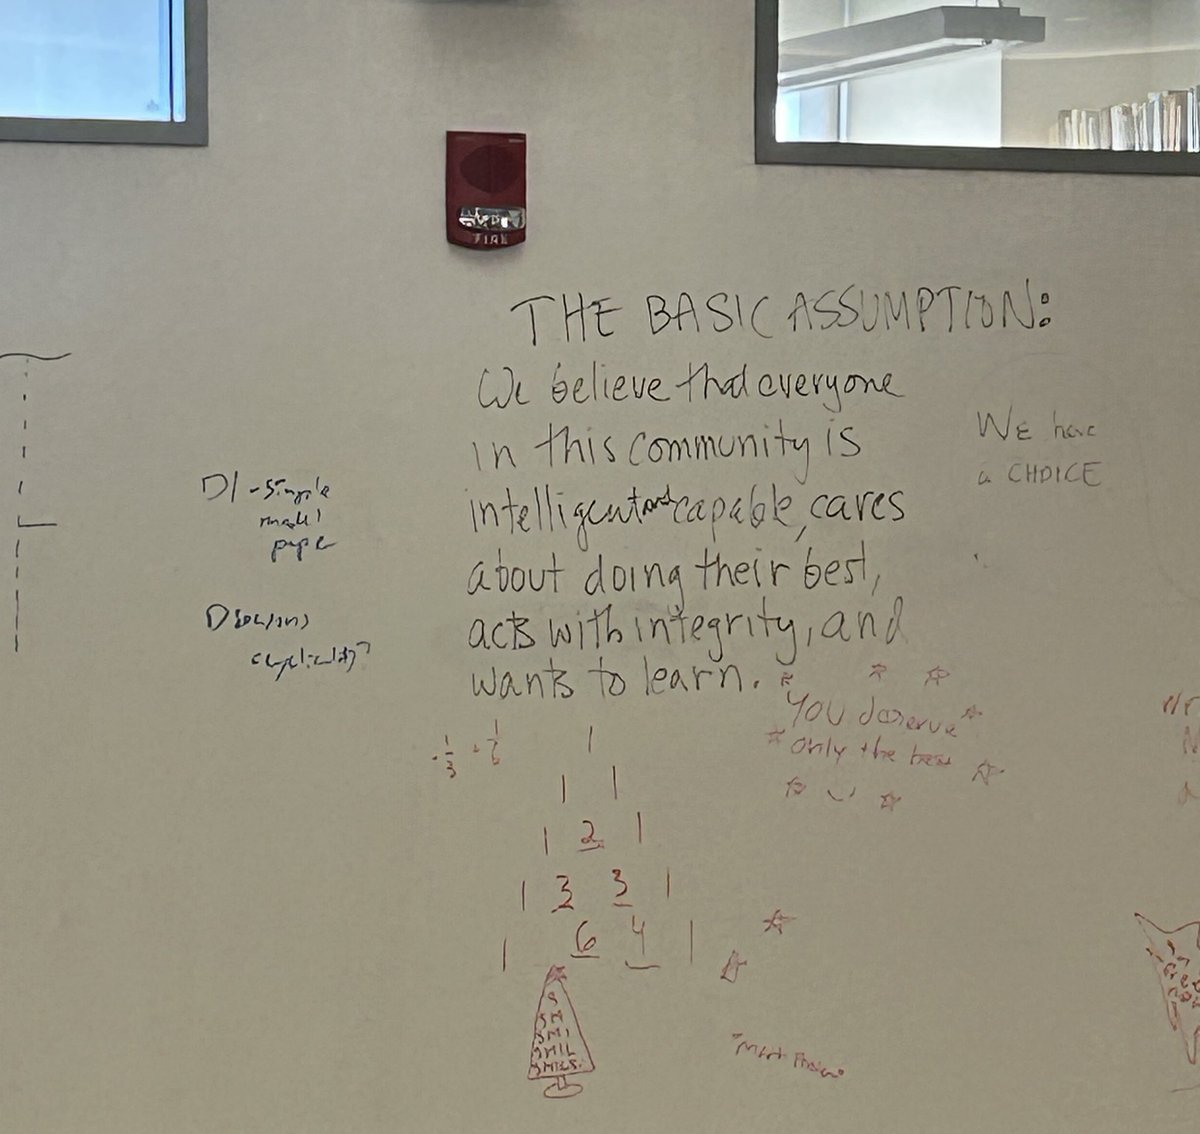 FIRE
THE BASIC ASSUMPTION:
We believe that everyone
in this community is
intelligent and capable, cares
about doing their best,
acts with integrity, and
wants to learn.
We have
a CHOICE
D1 - Simple
model
paper
YOU deserve
only the best
1/3
1/6
1
1 1
1 2 1
1 3 3 1
1 6 4 1
S
SM
SMI
SMIL